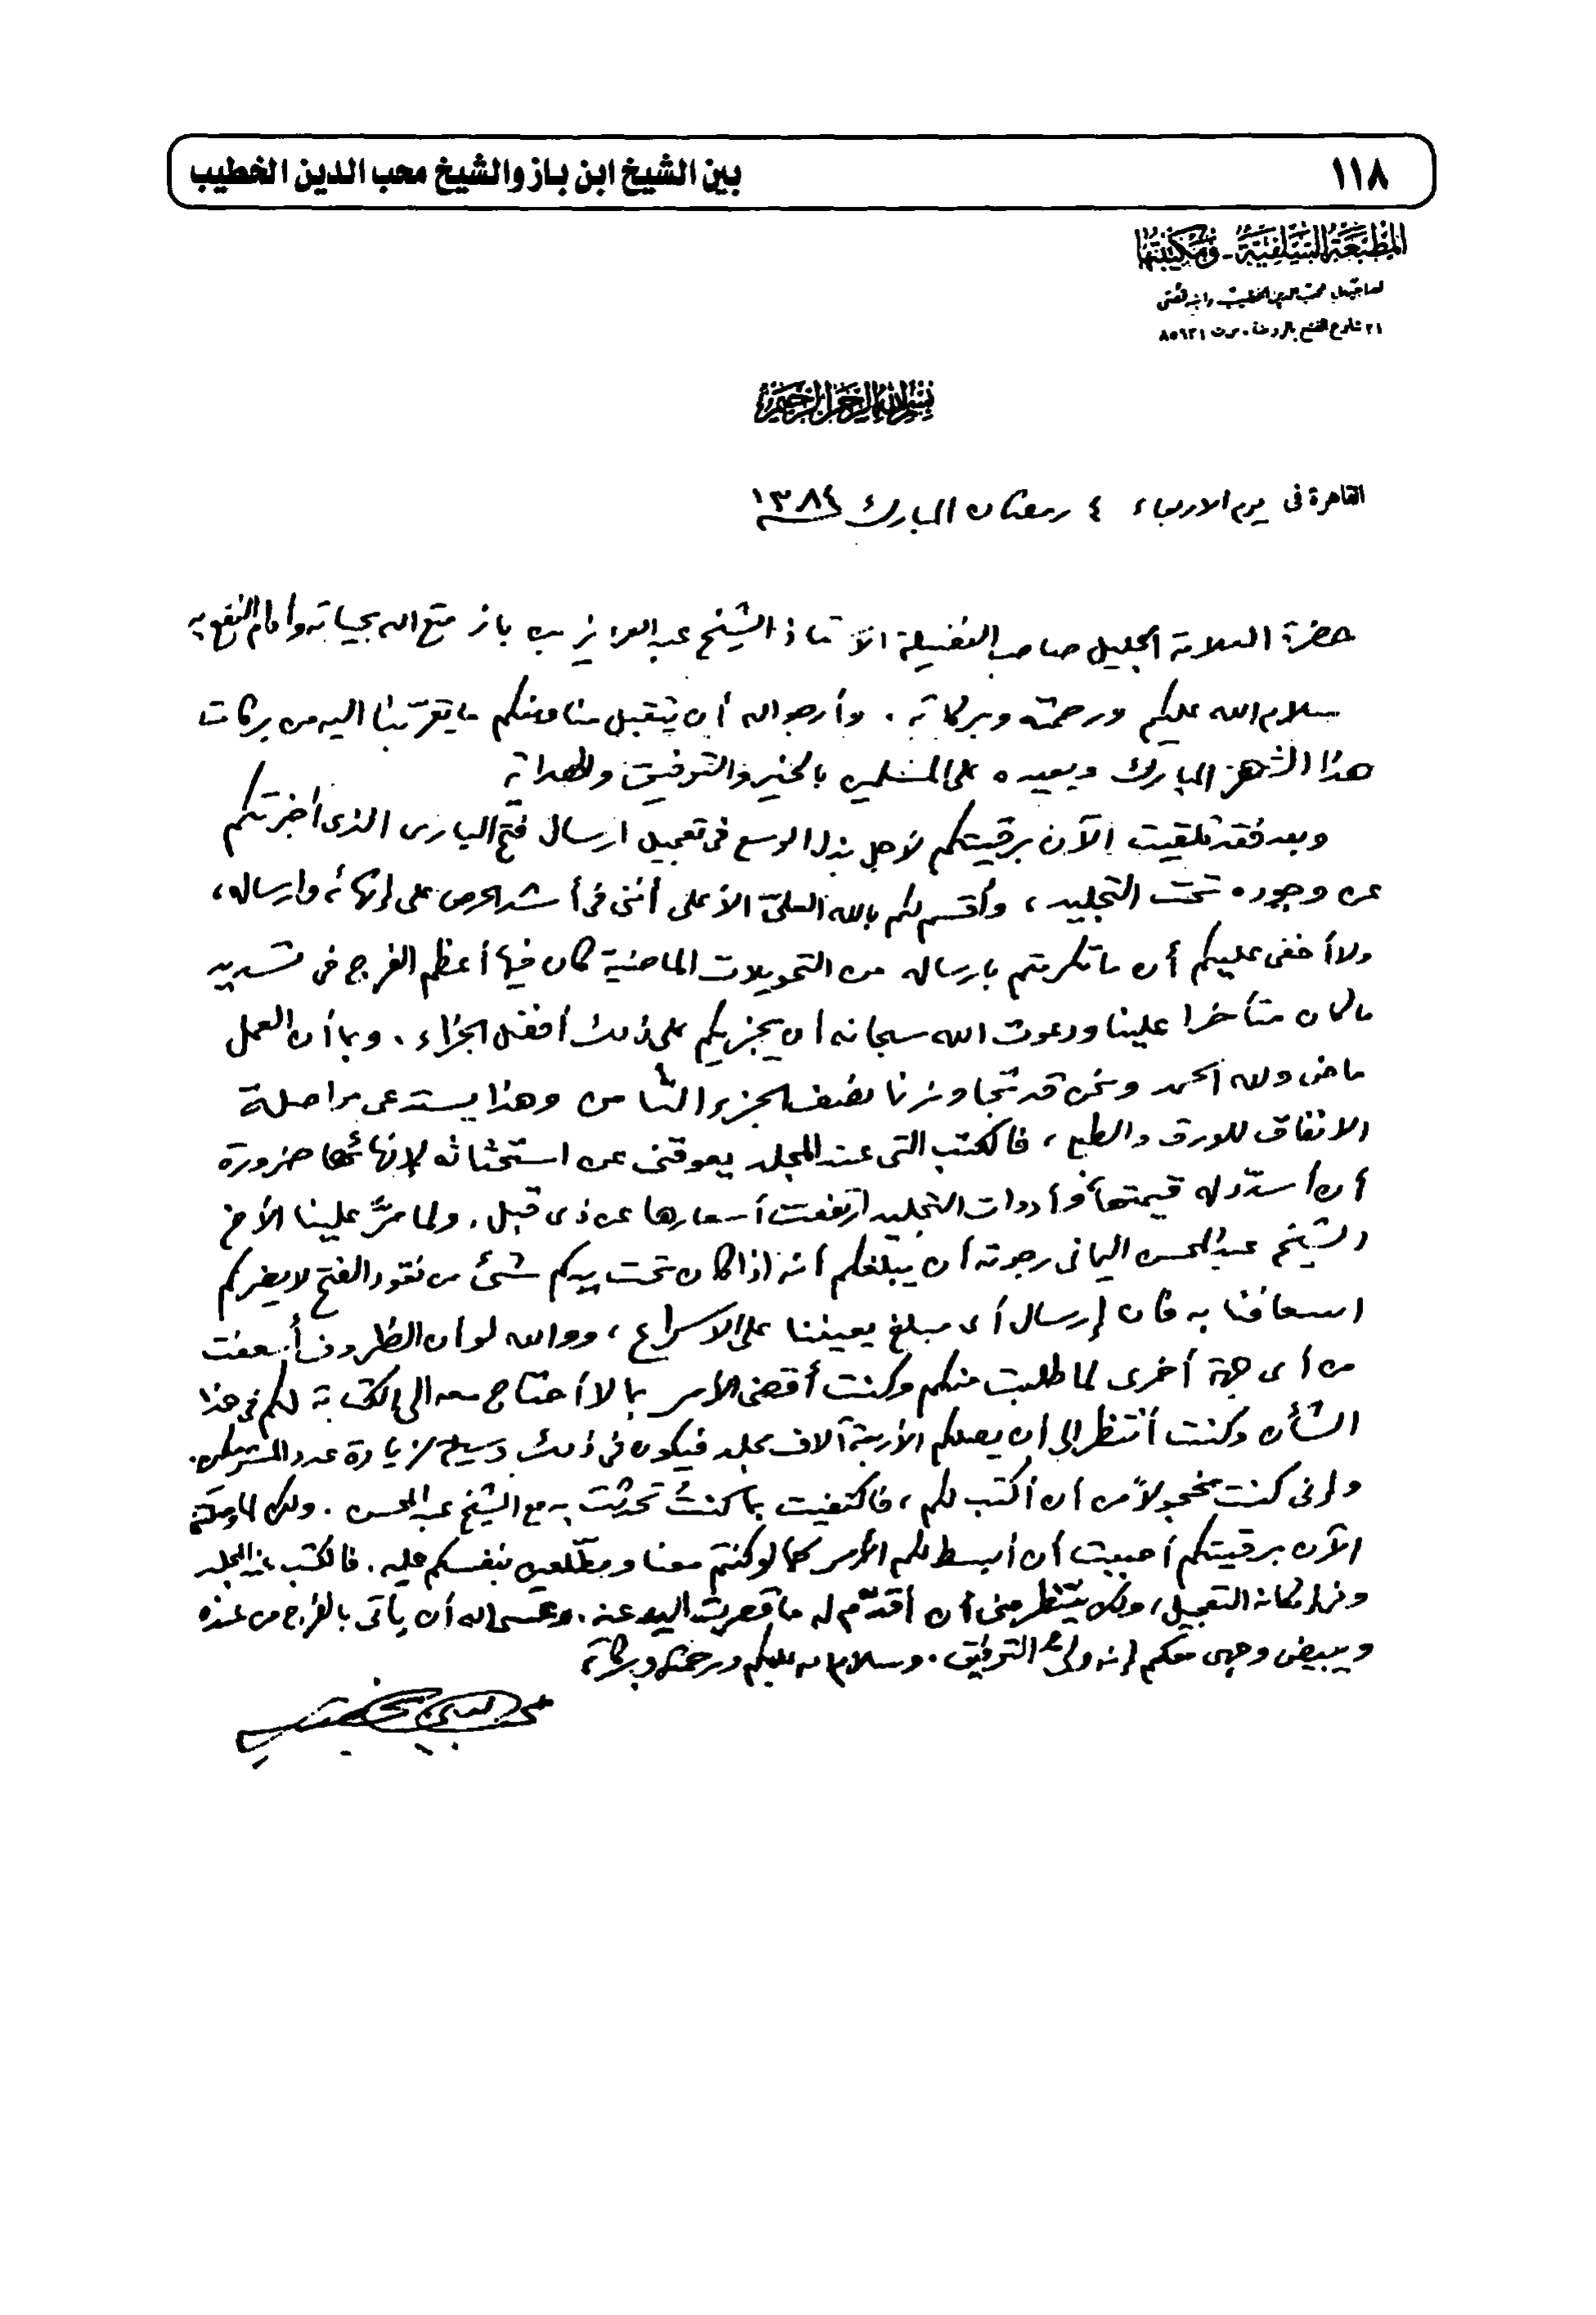 ١١٨
بين الشيخ ابن باز والشيخ محب الدين الخطيب
المطبعة السلفية - ومكتبتها
لصاحبها محب الدين الخطيب
٢١ شارع الفتح بالروضة . ت ٨٥٦٢١
بسم الله الرحمن الرحيم
القاهرة فى يوم الاربعاء ٤ رمضان المبارك ١٣٨٤
حضرة العلامة الجليل صاحب الفضيلة الأستاذ الشيخ عبد العزيز بن باز متع الله بحياته وأدام النفع به
سلام الله عليكم ورحمته وبركاته . وأرجو الله أن يتقبل منا ومنكم ما يقربنا اليه من بركات
هذا الشهر المبارك ويعيده على المسلمين بالخير والتوفيق والهداية
وبعد فقد تلقيت الآن برقيتكم لأجل بذل الوسع فى تعجيل ارسال فتح البارى الذى أخبرتكم
عن وجوده تحت التجليد ، وأقسم لكم بالله العلىّ الأعلى أننى فى أشد الحرص على إنهائه وارساله ،
ولا أخفى عليكم أن ما تكرمتم بارساله من التحويلات الماضية كان فيها أعظم الفرج فى تسديد
ما كان متأخرا علينا ودعوت الله سبحانه أن يجزيكم على ذلك أفضل الجزاء . وبما أن العمل
ماض ولله الحمد ونحن قد تجاوزنا نصف الجزء الثامن وهذا يستدعى مواصلة
الانفاق للورق والطبع ، فالكتب التى عند المجلد يعوقنى عن استحثاثه لإنهائها ضرورة
أن أسدّد له قيمتها وأدوات التجليد ارتفعت أسعارها عن ذى قبل . ولما مرَّ علينا الأخ
الشيخ عبد المحسن اليمانى رجوته أن يبلغكم أنه اذا كان تحت يدكم شئ من نقود الفتح لا يضركم
اسعافنا به فان إرسال أى مبلغ يعيننا على الاسراع ، ووالله لو أن الظروف أسعفت
من أى جهة أخرى لما طلبت منكم وكنت أقضى الأمر بما لا أحتاج معه الى الكتابة لكم فى هذا
الشأن وكنت أنتظر إلى أن يصلكم الأربعة آلاف مجلد فيكون فى ذلك وسيلة لزيادة عدد المشتركين.
وإنى كنت خجولاً من أن أكتب لكم ، فاكتفيت بما كنتُ تحدثت به مع الشيخ عبد المحسن . ولكن لما وصلتنى
الآن برقيتكم أحببت أن أبسط لكم الأمر كما لو كنتم معنا ومطّلعين بنفسكم عليه . فالكتب عند المجلد
وفى إمكانه التعجيل ، ولكن ينتظر منى أن أقدّم له ما قصرت اليد عنه . وعسى الله أن يأتى بالفرج من عنده
ويبيض وجهى معكم إنه ولى التوفيق . وسلام الله عليكم ورحمته وبركاته
محب الدين الخطيب